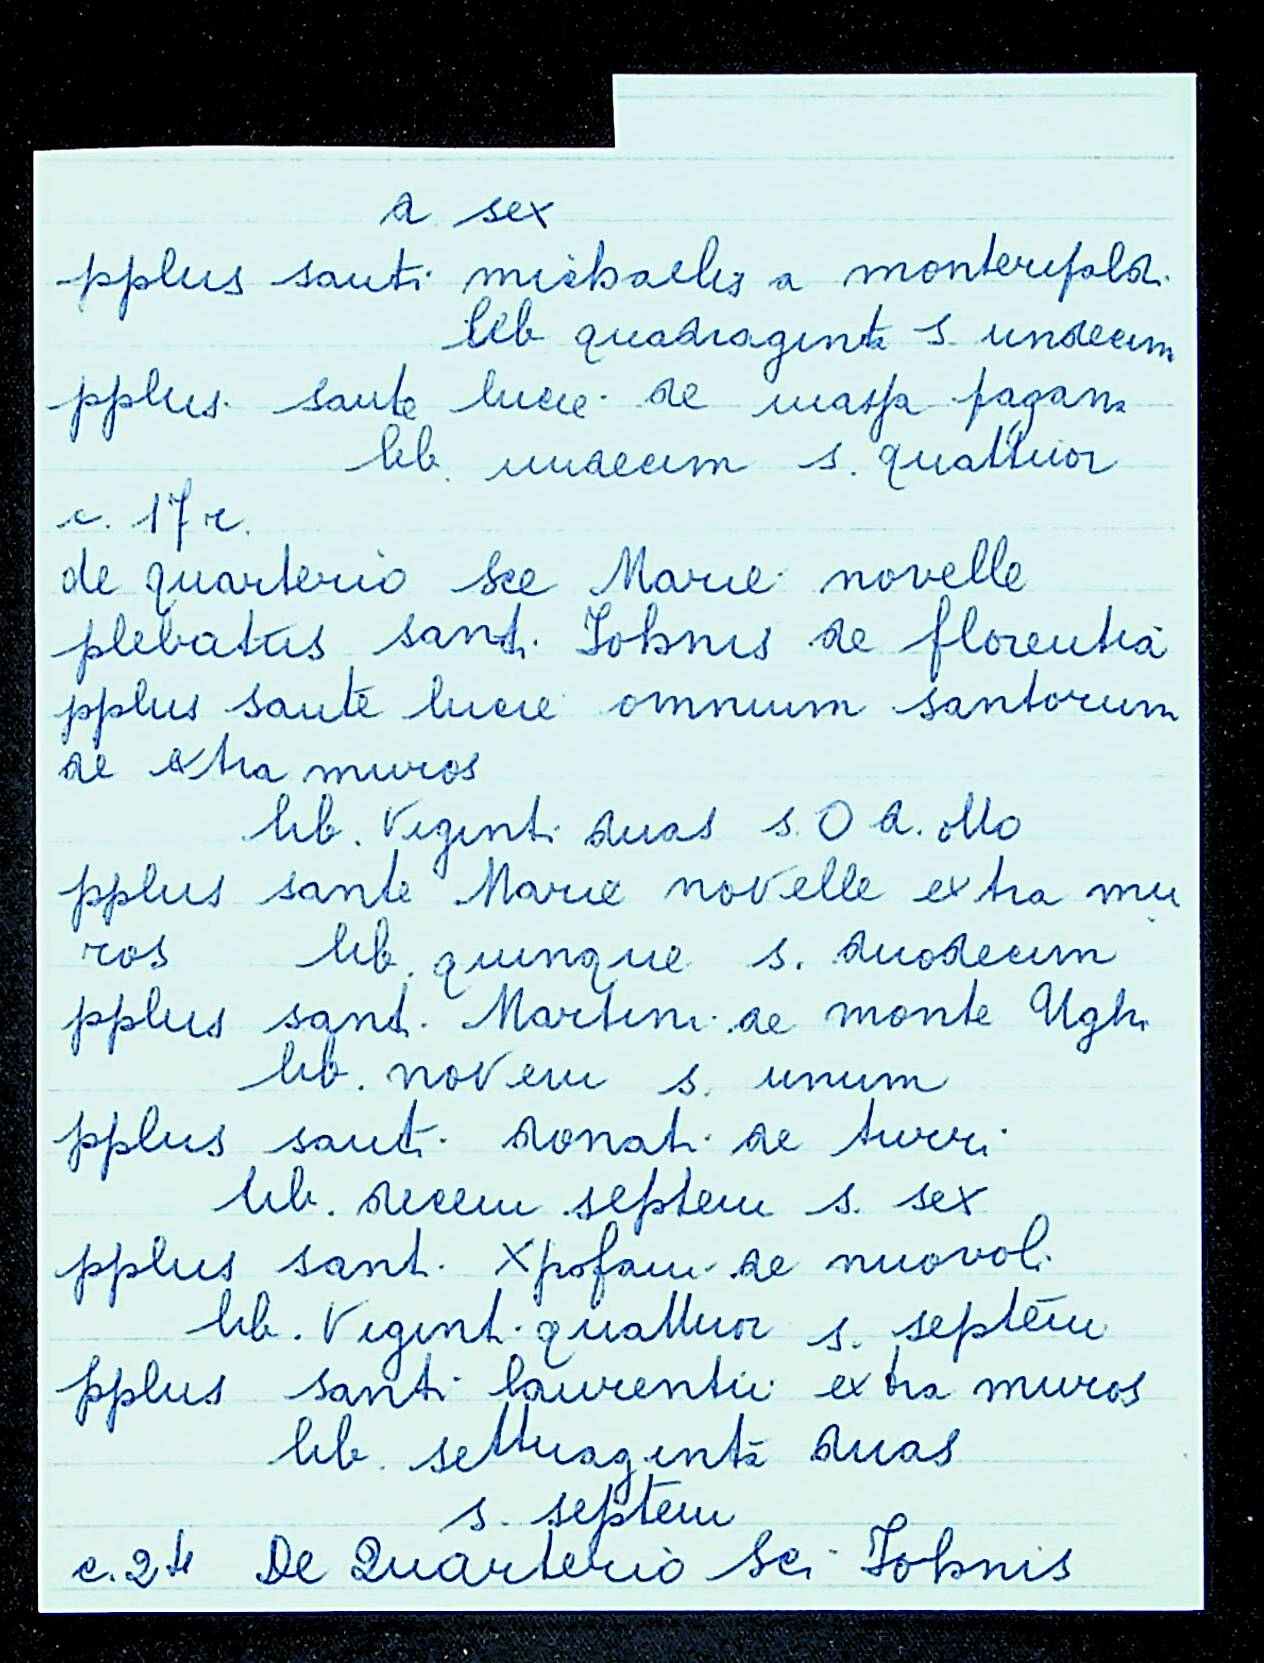 d. sex
pplus santi michaelis a monterifoldi
lib quadraginta s. undecim
pplus sante lucie de massa pagani
lib. undecim s. quattuor
c. 17 r.
de quarterio sce Marie novelle
plebatus santi Iohnis de florentia
pplus sante lucie omnium santorum
de extra muros
lib. Viginti duas s. O d. otto
pplus sante Marie novelle extra mu
ros lib. quinque s. duodecim
pplus santi Martini de monte Ughi
lib. novem s. unum
pplus santi donati de turri
lib. decem septem s. sex
pplus santi Xpofani de nuovoli
lib. Viginti quattuor s. septem
pplus santi laurentii extra muros
lib. settuaginta duas
s. septem
c. 2 De Quarterio Sci Iohnis